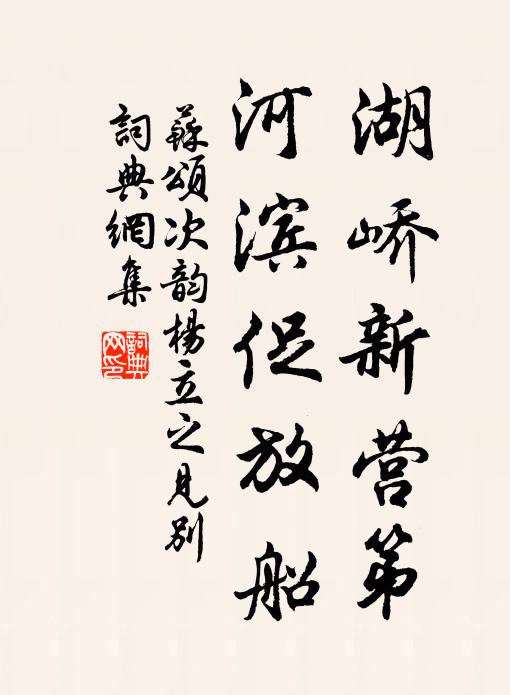 湖峤新营第
河滨促放船
蘇頌次韵楊立之見別
詞典網集
詞典网印